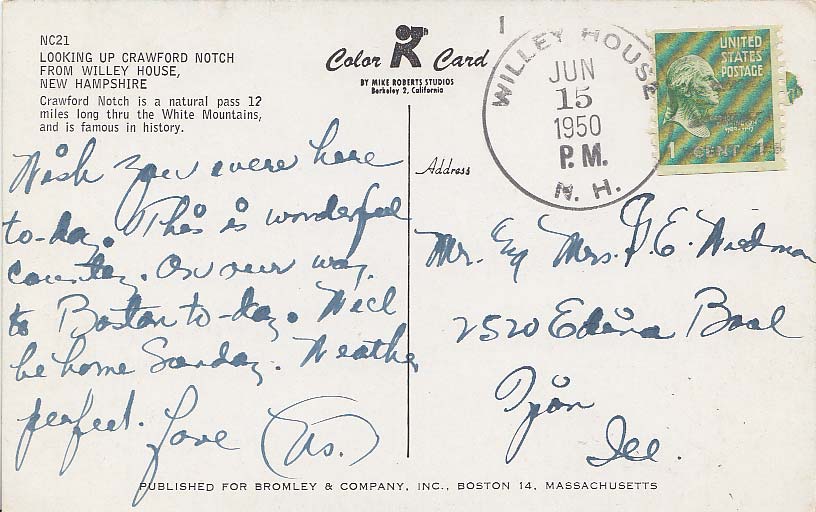 NC21
LOOKING UP CRAWFORD NOTCH
FROM WILLEY HOUSE,
NEW HAMPSHIRE
Crawford Notch is a natural pass 12
miles long thru the White Mountains,
and is famous in history.
Color Card
BY MIKE ROBERTS STUDIOS
Berkeley 2, California
WILLEY HOUSE
JUN
15
1950
P.M.
N. H.
UNITED
STATES
POSTAGE
1 CENT 1
Wish you were here
to-day. This is wonderful
country. On our way
to Boston to-day. Will
be home Sunday. Weather
perfect. Love (Us.)
Address
Mr. & Mrs. J. E. Widman
2520 Edina Boul
Zion
Ill.
PUBLISHED FOR BROMLEY & COMPANY, INC., BOSTON 14, MASSACHUSETTS